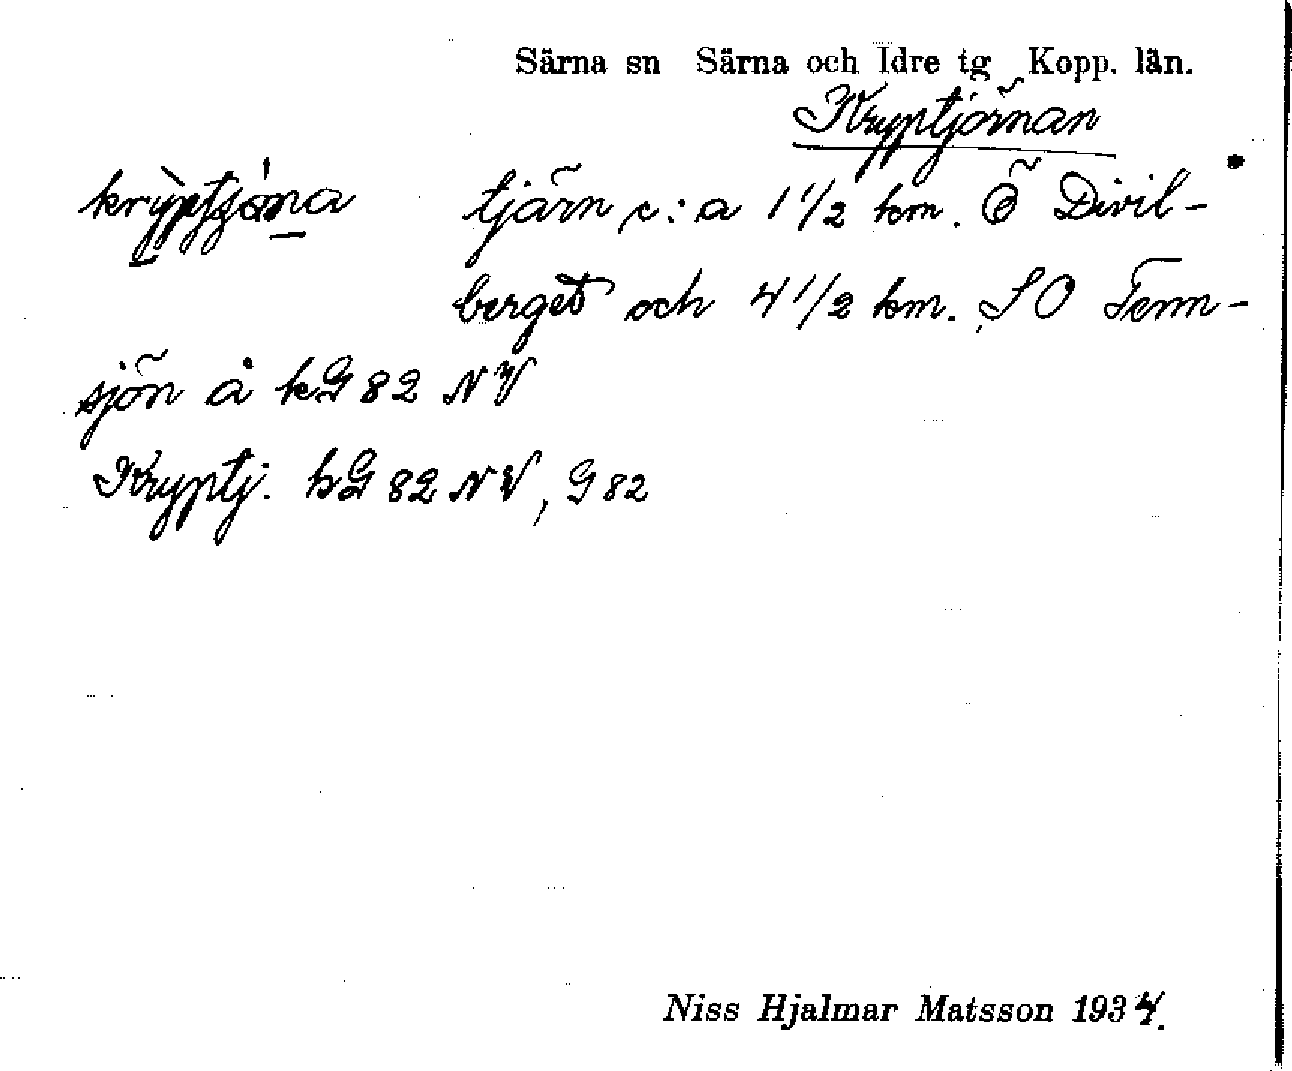 Särna sn Särna och Idre tg Kopp. län.
Kryptjörnan
tjärn c:a 1 1/2 km. Ö Divil-
berget och 4 1/2 km. SO Tenn-
sjön å kG 82 NV
Kryptj. hG 82 NV, G 82
Niss Hjalmar Matsson 1934.